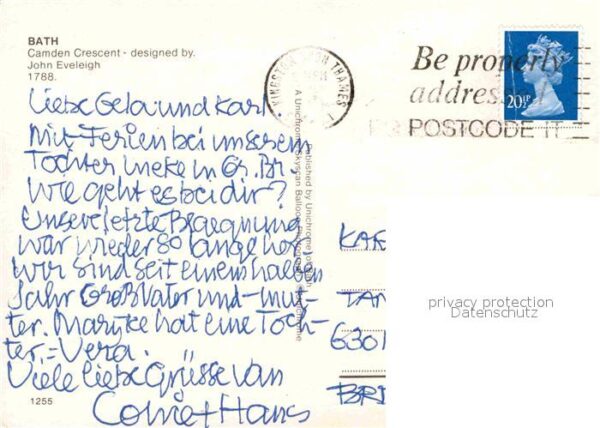 BATH
Camden Crescent - designed by.
John Eveleigh
1788.
Liebe Gela und Karl
Mit Ferien bei unserem
Tochter in Gr. Br.
Wie geht es bei dir?
Unsere letzte Begegnung
war wieder so lange her
Wir sind seit einem halben
Jahr Großvater und -mut-
ter. Maryke hat eine Toch-
ter. = Vera.
Viele liebe Grüsse van
+ Hans
1255
Published by Unichrome
A Unichrome/Skyscan Balloon
KINGSTON UPON THAMES
Be properly
address
POSTCODE IT
20½P
KAR
TAN
6301
privacy protection
Datenschutz